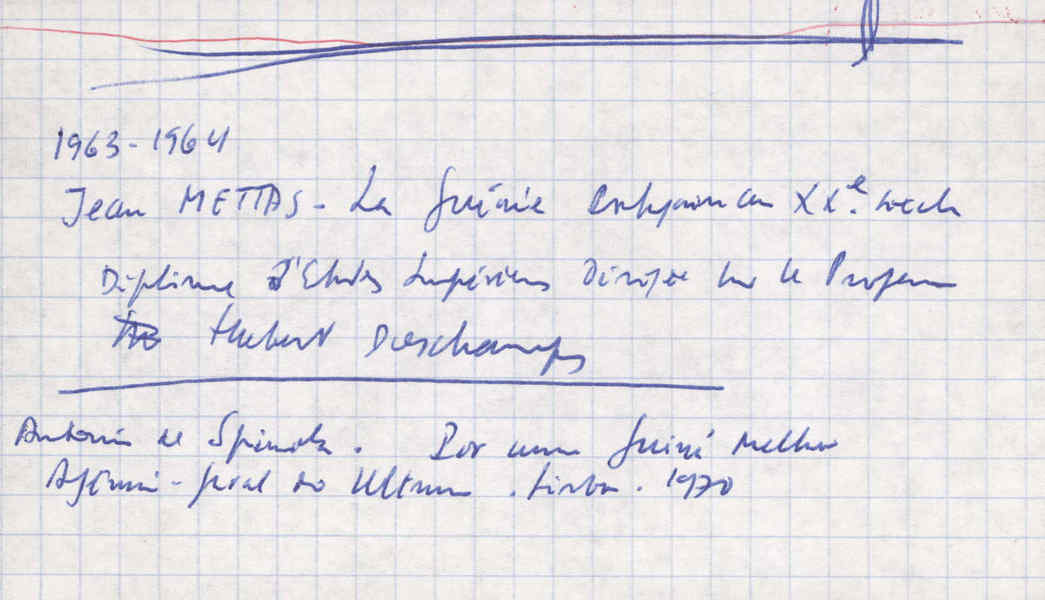 1963-1964
Jean METTAS - La Guinée Portugaise au XXe. siècle
Diplôme d'Etudes Supérieures Dirigée par le Professeur
Hubert Deschamps
Antonio de Spinola. Por uma Guiné Melhor
Agência-geral do Ultramar. Lisboa. 1970